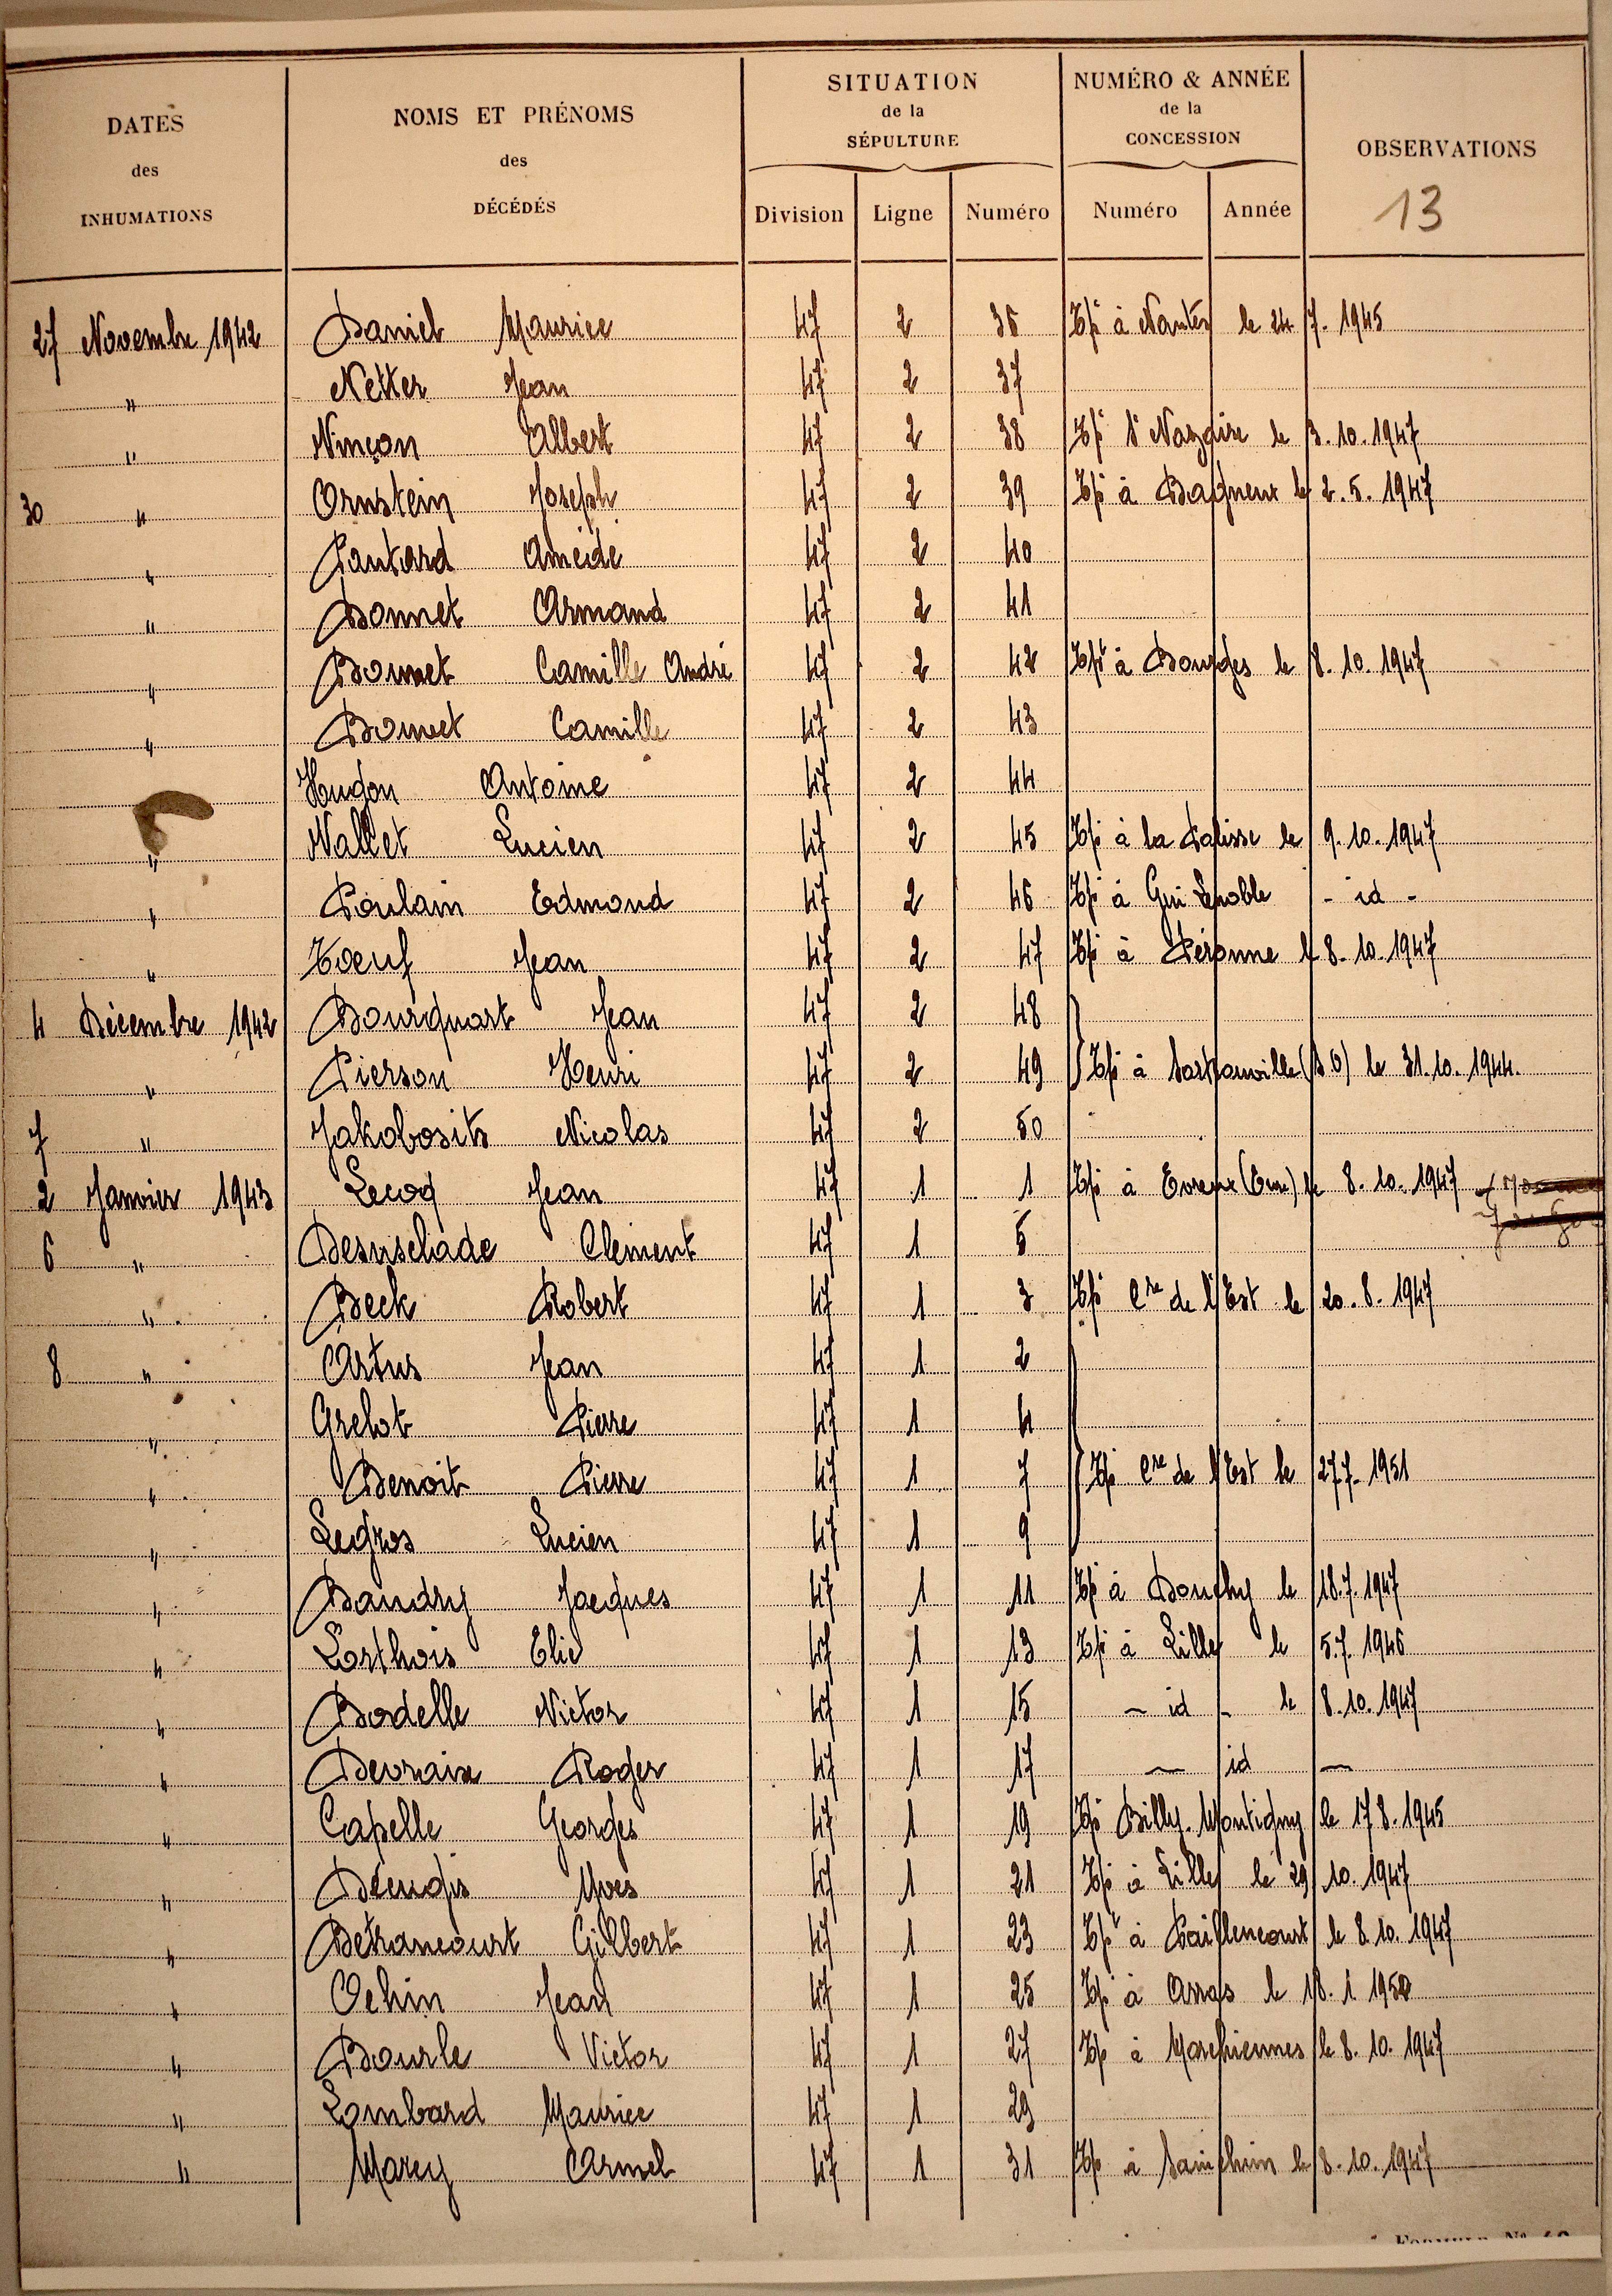 DATES des INHUMATIONS
NOMS ET PRÉNOMS des DÉCÉDÉS
SITUATION de la SÉPULTURE
NUMÉRO & ANNÉE de la CONCESSION
OBSERVATIONS
Division Ligne Numéro Numéro Année 13
27 Novembre 1942 Daniel Maurice 47 2 36 Tpé à Nantes le 24 7. 1945
" Netter Jean 47 2 37
" Vinçon Albert 47 2 38 Tpé St Nazaire le 3.10.1947
30 " Ornstein Joseph 47 2 39 Tpé à Bagneux le 2.5.1947
" Pantard Amédé 47 2 40
" Bonnet Armand 47 2 41
" Bonnet Camille André 47 2 42 Tpé à Bourges le 8.10.1947
" Bonnet Camille 47 2 43
Hugon Antoine 47 2 44
" Vallet Lucien 47 2 45 Tpé à la Palisse le 9.10.1947
" Poulain Edmond 47 2 46 Tpé à - id -
" Toeuf Jean 47 2 47 Tpé à Péronne le 8.10.1947
4 Décembre 1942 Bourquart Jean 47 2 48
" Pierson Henri 47 2 49 Tpé à Sartrouville (S.O) le 31.10.1944.
7 " Jakobosits Nicolas 47 2 50
2 Janvier 1943 Lecoq Jean 47 1 1 Tpé à Evreux (Eure) le 8.10.1947
6 " Desuschade Clément 47 1 5
" Beck Robert 47 1 3 Tpé Cre de l'Est le 20.8.1947
8 " Artus Jean 47 1 2
" Grelot Pierre 47 1 4
" Benoit Pierre 47 1 7 Tpé Cre de l'Est le 27.7.1951
" Legros Lucien 47 1 9
" Baudry Jacques 47 1 11 Tpé à Douchy le 18.7.1947
" Lorthois Elie 47 1 13 Tpé à Lille le 5.7.1946
" Bodelle Victor 47 1 15 - id - le 8.10.1947
" Devraix Roger 47 1 17 - id -
" Capelle Georges 47 1 19 Tpé Billy-Montigny le 17 8.1945
" Yves 47 1 21 Tpé à Lille le 29 10.1947
" Detrancourt Gilbert 47 1 23 Tpé à Paillencourt le 8.10.1947
" Ochin Jean 47 1 25 Tpé à Arras le 18.1 1950
" Bourle Victor 47 1 27 Tpé à Marchiennes le 8.10.1947
" Lombard Maurice 47 1 29
" Marcy Armel 47 1 31 Tpé à Sainghin le 8.10.1947